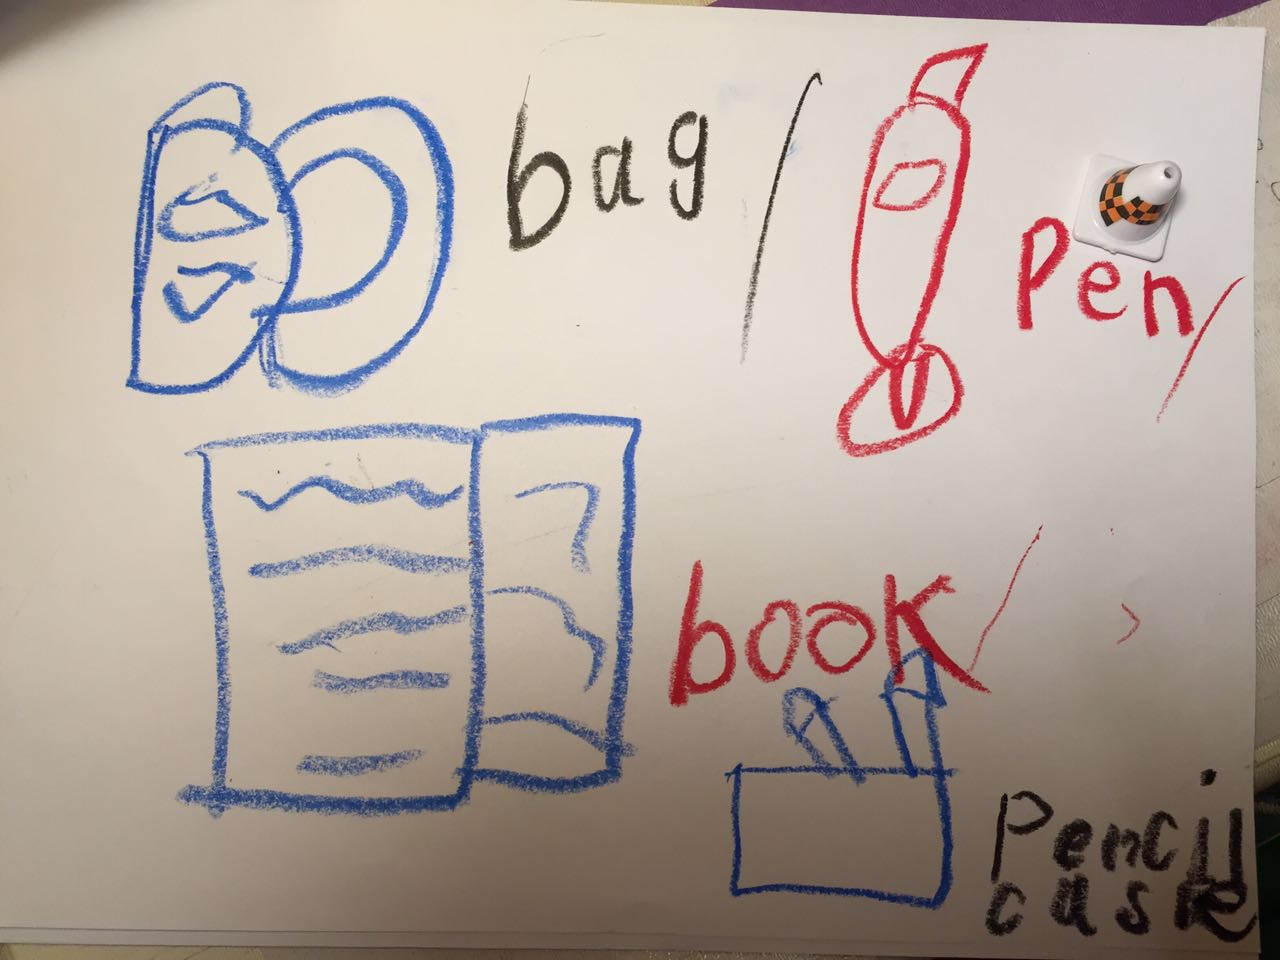 bag /
Pen /
book /
Pencil
case